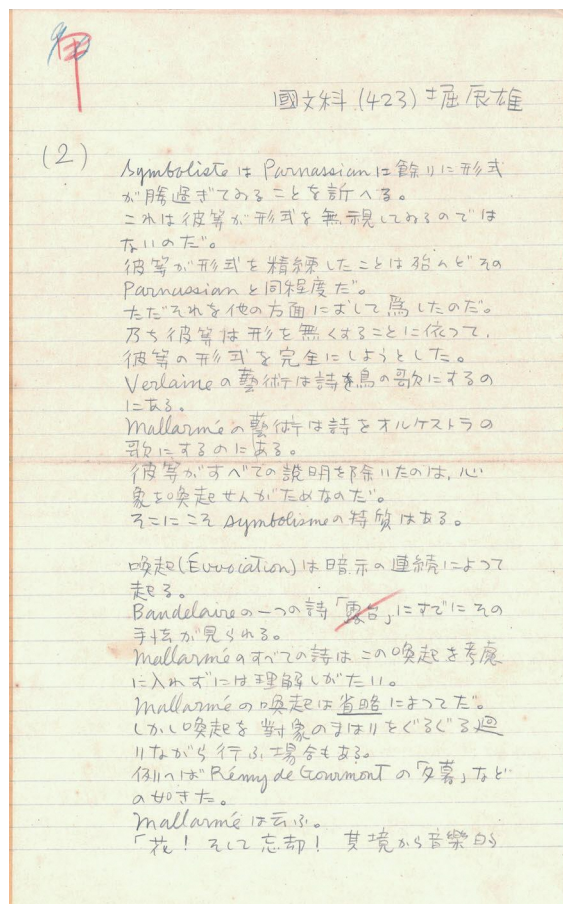 甲
國文科 (423) 堀辰雄
(2)
Symboliste は Parnassian に餘りに形式
が勝過ぎてゐることを訴へる。
これは彼等が形式を無視してゐるのでは
ないのだ。
彼等が形式を精練したことは殆んどその
Parnassian と同程度だ。
ただそれを他の方面に於して爲したのだ。
乃ち彼等は形を無くすることに依つて、
彼等の形式を完全にしようとした。
Verlaine の藝術は詩を鳥の歌にするの
にある。
Mallarmé の藝術は詩をオルケストラの
歌にするのにある。
彼等がすべての説明を除いたのは、心
象を喚起せんがためなのだ。
そこにこそ Symbolisme の特質はある。
喚起(Évvociation)は暗示の連続によつて
起る。
Bandelaire の一つの詩「露台」にすでにその
手法が見られる。
Mallarmé のすべての詩はこの喚起を考慮
に入れずには理解しがたい。
Mallarmé の喚起は省略によつてだ。
しかし喚起を對象のまはりをぐるぐる廻
りながら行ふ場合もある。
例へば Rémy de Gourmont の「夕暮」など
の如きた。
Mallarmé は云ふ。
「花! そして忘却! 其境から音樂的